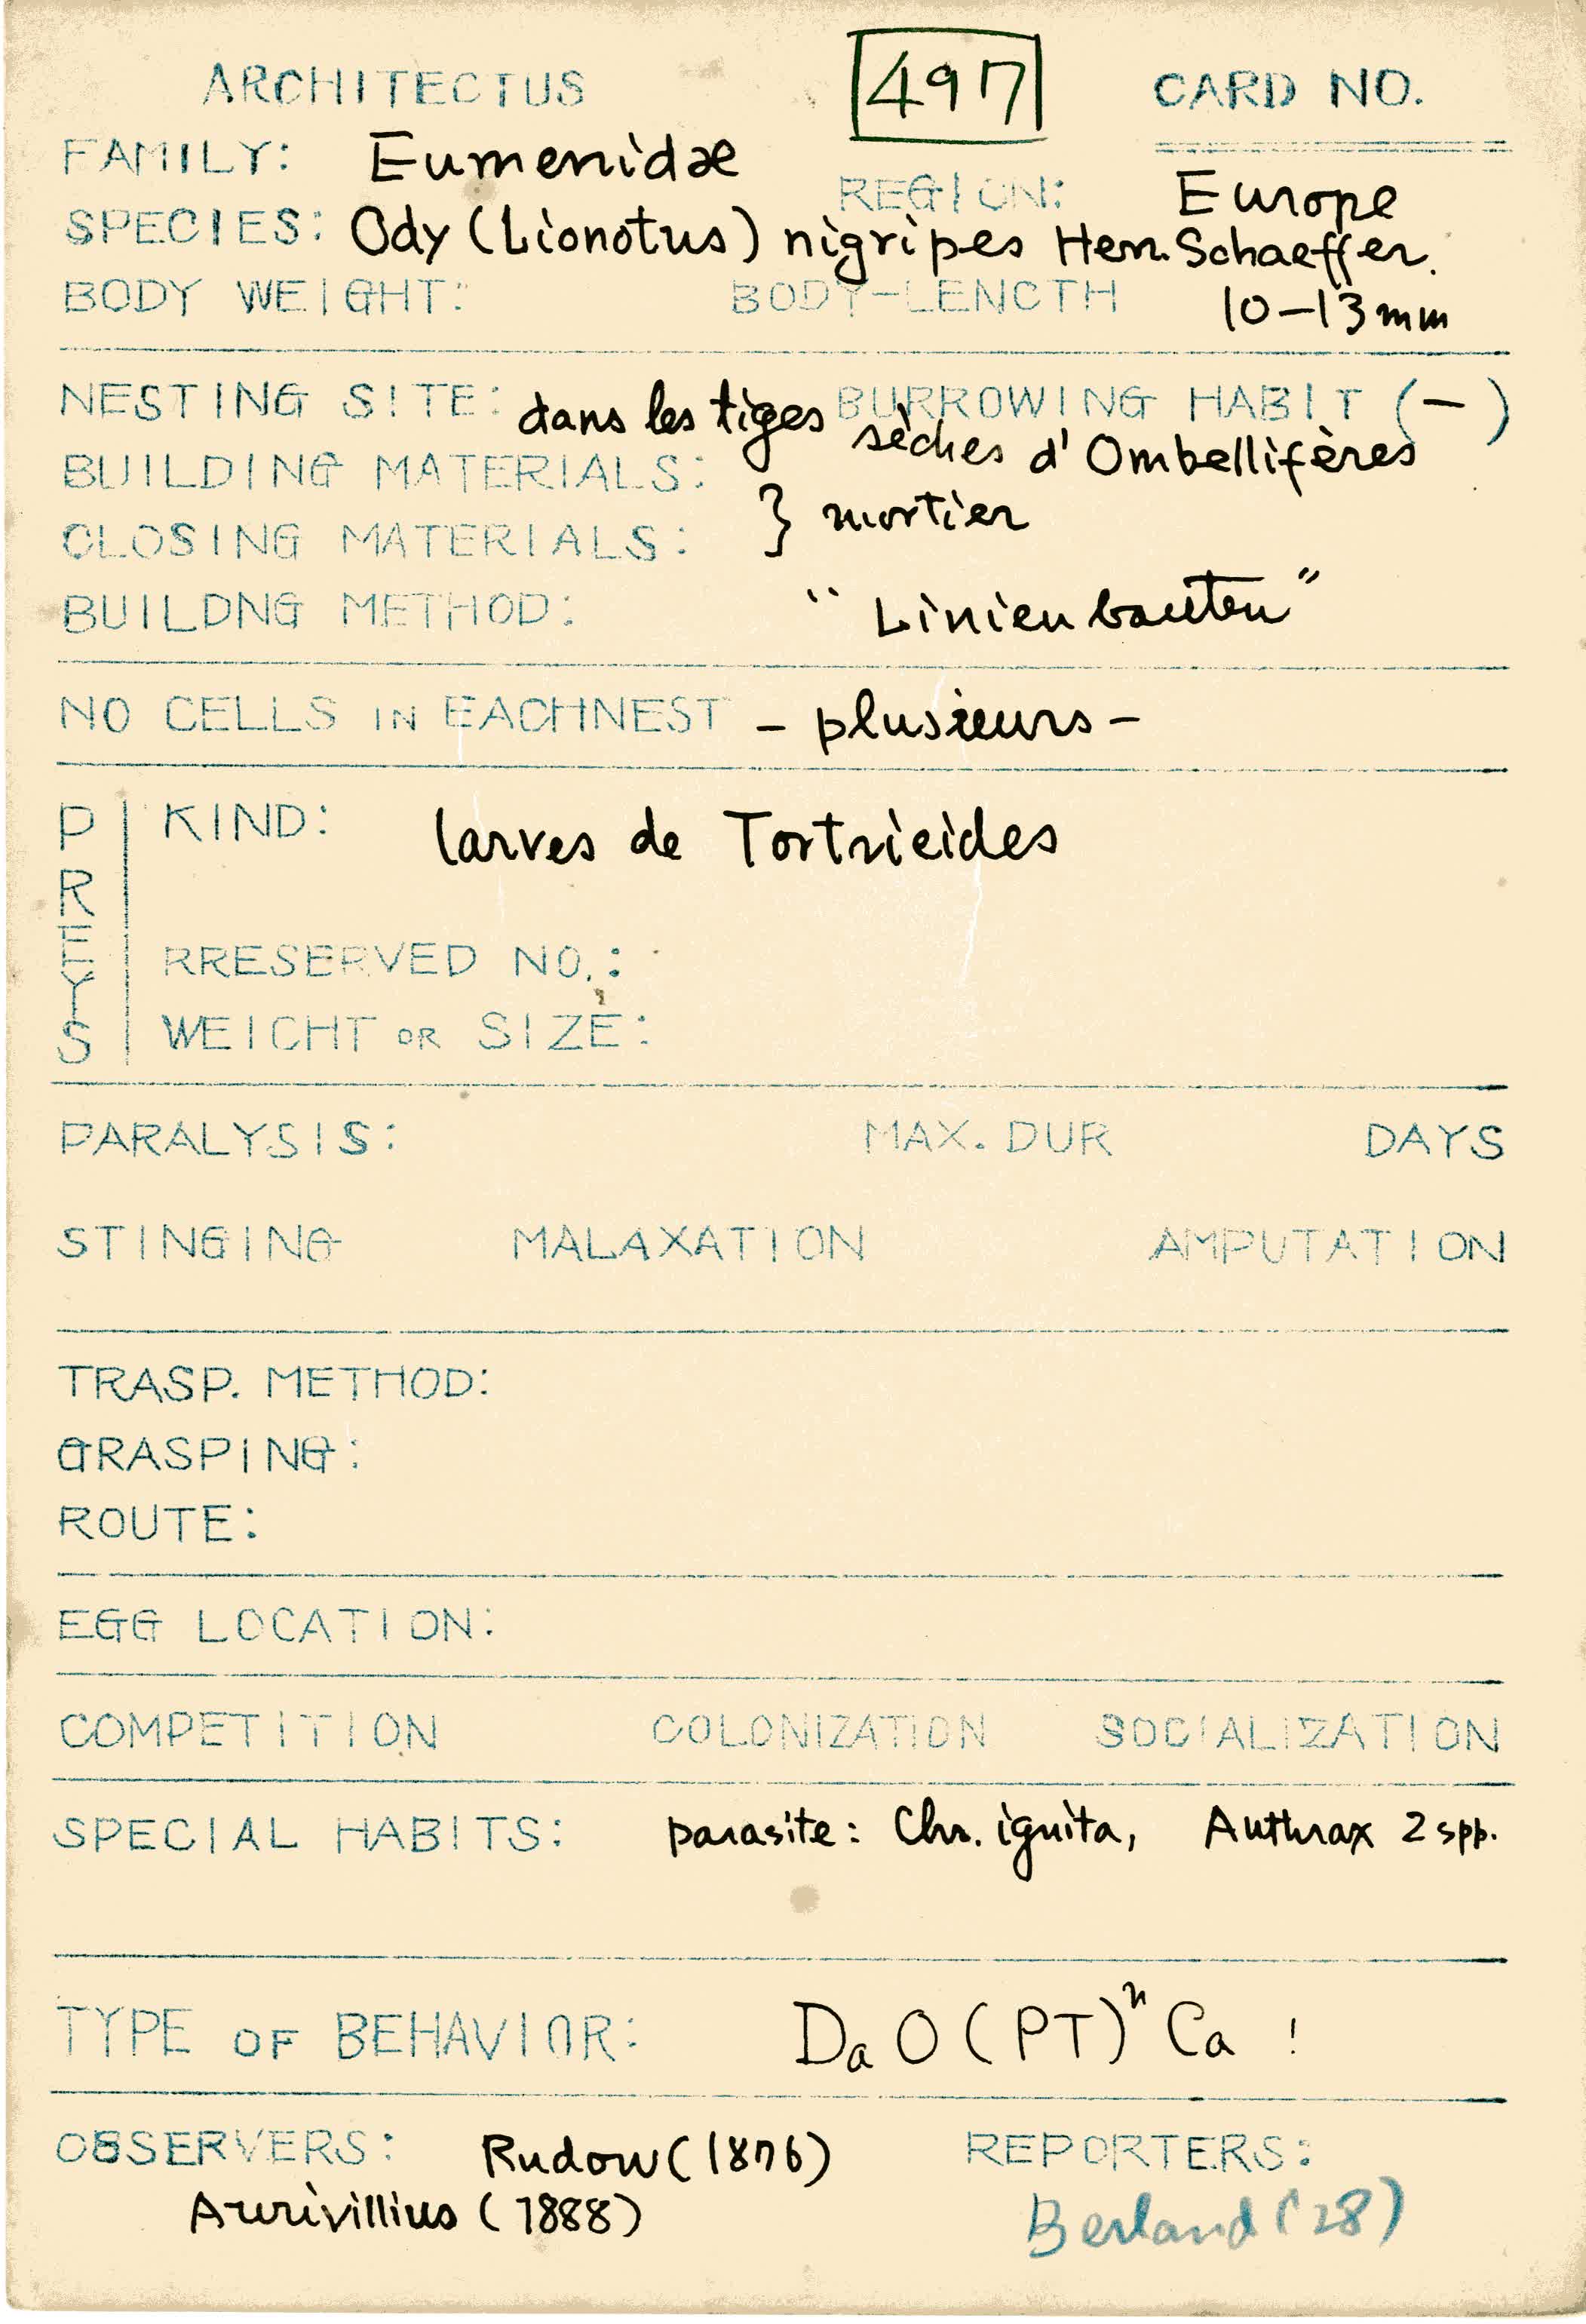 ARCHITECTUS 497 CARD NO.
FAMILY: Eumenidæ
REGION: Europe
SPECIES: Ody (Lionotus) nigripes Herr. Schaeffer.
BODY WEIGHT: BODY-LENCTH 10-13mm
NESTING SITE: dans les tiges sèches d'Ombellifères BURROWING HABIT (-)
BUILDING MATERIALS:
CLOSING MATERIALS: } mortier
BUILDNG METHOD: "Linienbauten"
NO CELLS IN EACHNEST - plusieurs -
PREYS
KIND: larves de Tortricides
RRESERVED NO.:
WEICHT OR SIZE:
PARALYSIS: MAX. DUR DAYS
STINGING MALAXATION AMPUTATION
TRASP. METHOD:
GRASPING:
ROUTE:
EGG LOCATION:
COMPETITION COLONIZATION SOCIALIZATION
SPECIAL HABITS: parasite: Chr. ignita, Anthrax 2 spp.
TYPE OF BEHAVIOR: DaO(PT)ⁿCa !
OBSERVERS: Rudow (1876) REPORTERS:
Aurivillius (1888) Berland (28)